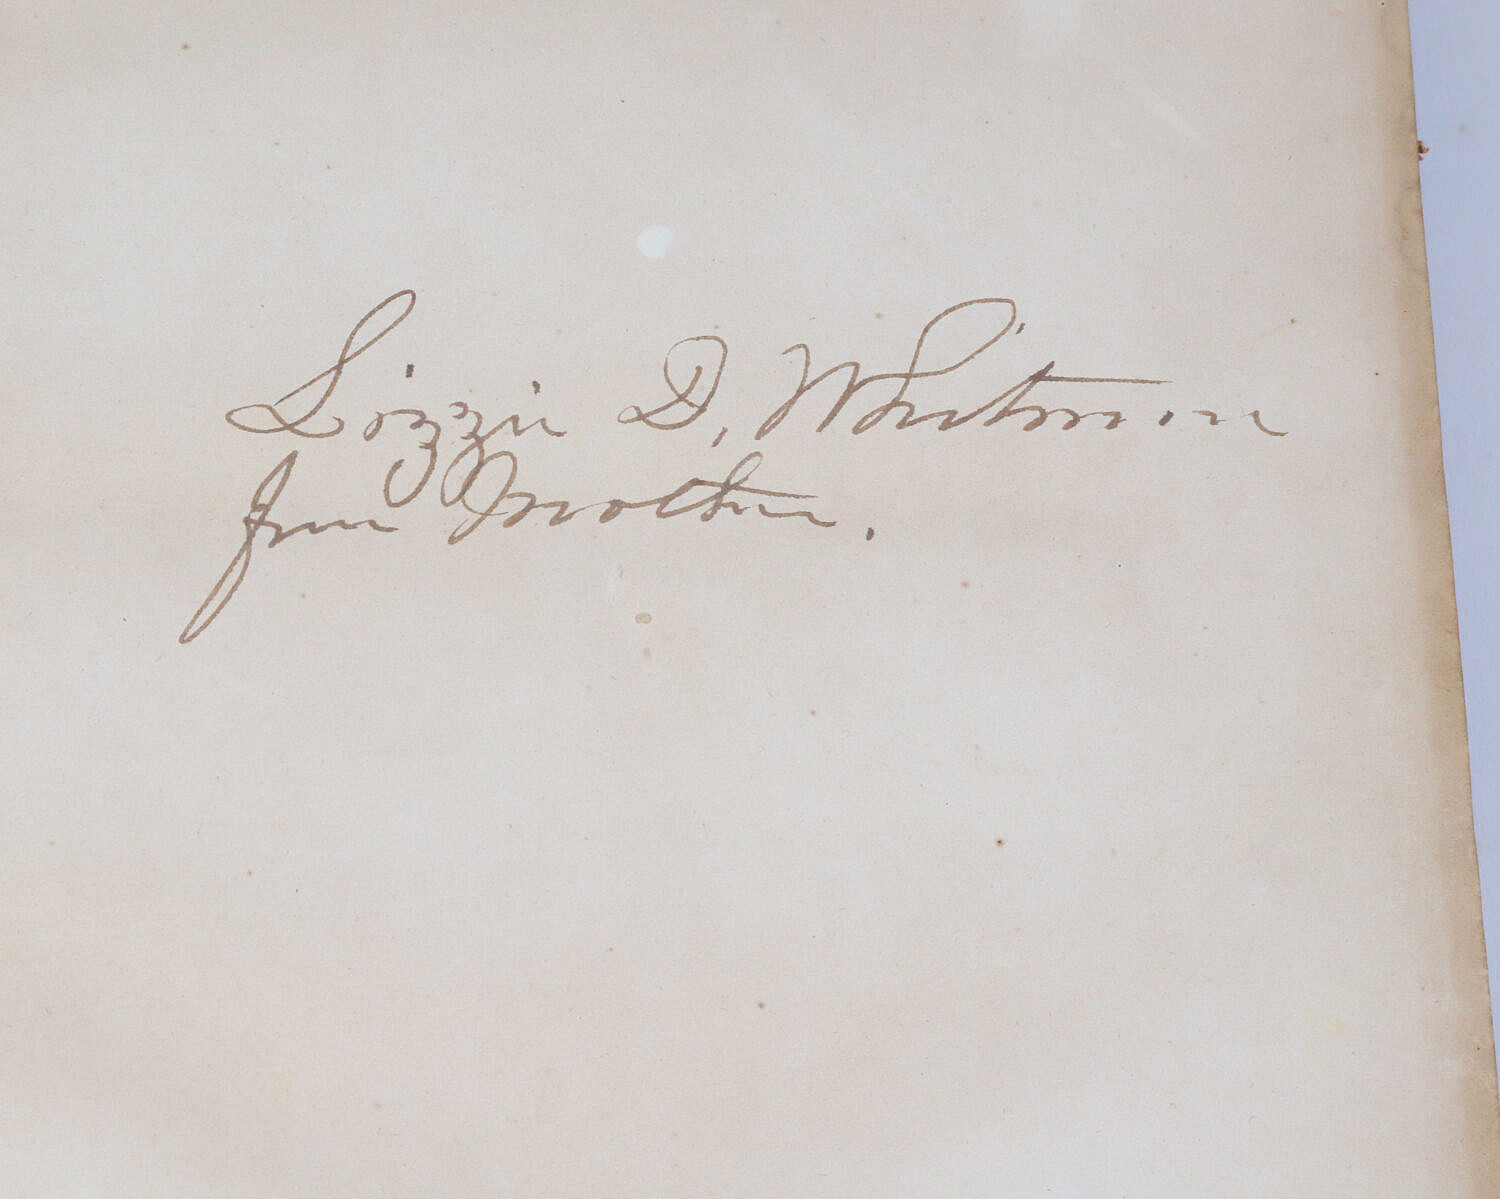 Lizzie D. Whitman
from Mother.